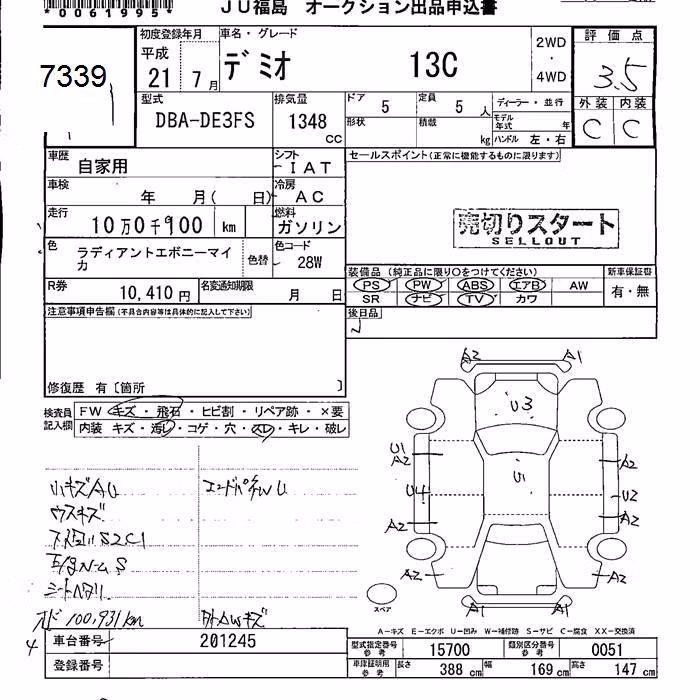 *0061995*
JU福島 オークション出品申込書
7339
初度登録年月
平成
21 7月
車名・グレード
デミオ 13C
2WD
・
4WD
評価点
3.5
外装 内装
C C
型式
DBA-DE3FS
排気量
1348
cc
ドア 5
定員 5 人
形状
積載 kg
ディーラー・並行
モデル年式 年
ハンドル 左・右
車歴 自家用
シフト IAT
セールスポイント(正常に機能するものに限ります)
車検 年 月( 日)
冷房 AC
走行 10万0千900 km
燃料 ガソリン
売切りスタート
SELLOUT
色 ラディアントエボニーマイカ
色替
色コード 28W
装備品 (純正品に限り○をつけてください)
新車保証書
PS PW ABS エアB AW
有・無
SR ナビ TV カワ
R券 10,410円
名変通知期限 月 日
注意事項申告欄(不具合内容等は具体的に記入して下さい)
後日品
修復歴 有〔箇所 〕
検査員記入欄
FW キズ・飛石・ヒビ割・リペア跡・×要
内装 キズ・汚レ・コゲ・穴・スレ・キレ・破レ
A2 A1
U3
U1
A2 A2
U1
U4 U2
A2 A2
A2 A2
A1 A1
スペア
小キズAU エンドパネWU
ウスキズ
下廻りS2C1
シートヘタリ
100,931km
A-キズ E-エクボ U-凹み W-補修跡 S-サビ C-腐食 XX-交換済
車台番号 201245
登録番号
型式指定番号 参考 15700
類別区分番号 参考 0051
車庫証明用 参考 長さ 388cm 幅 169cm 高さ 147cm